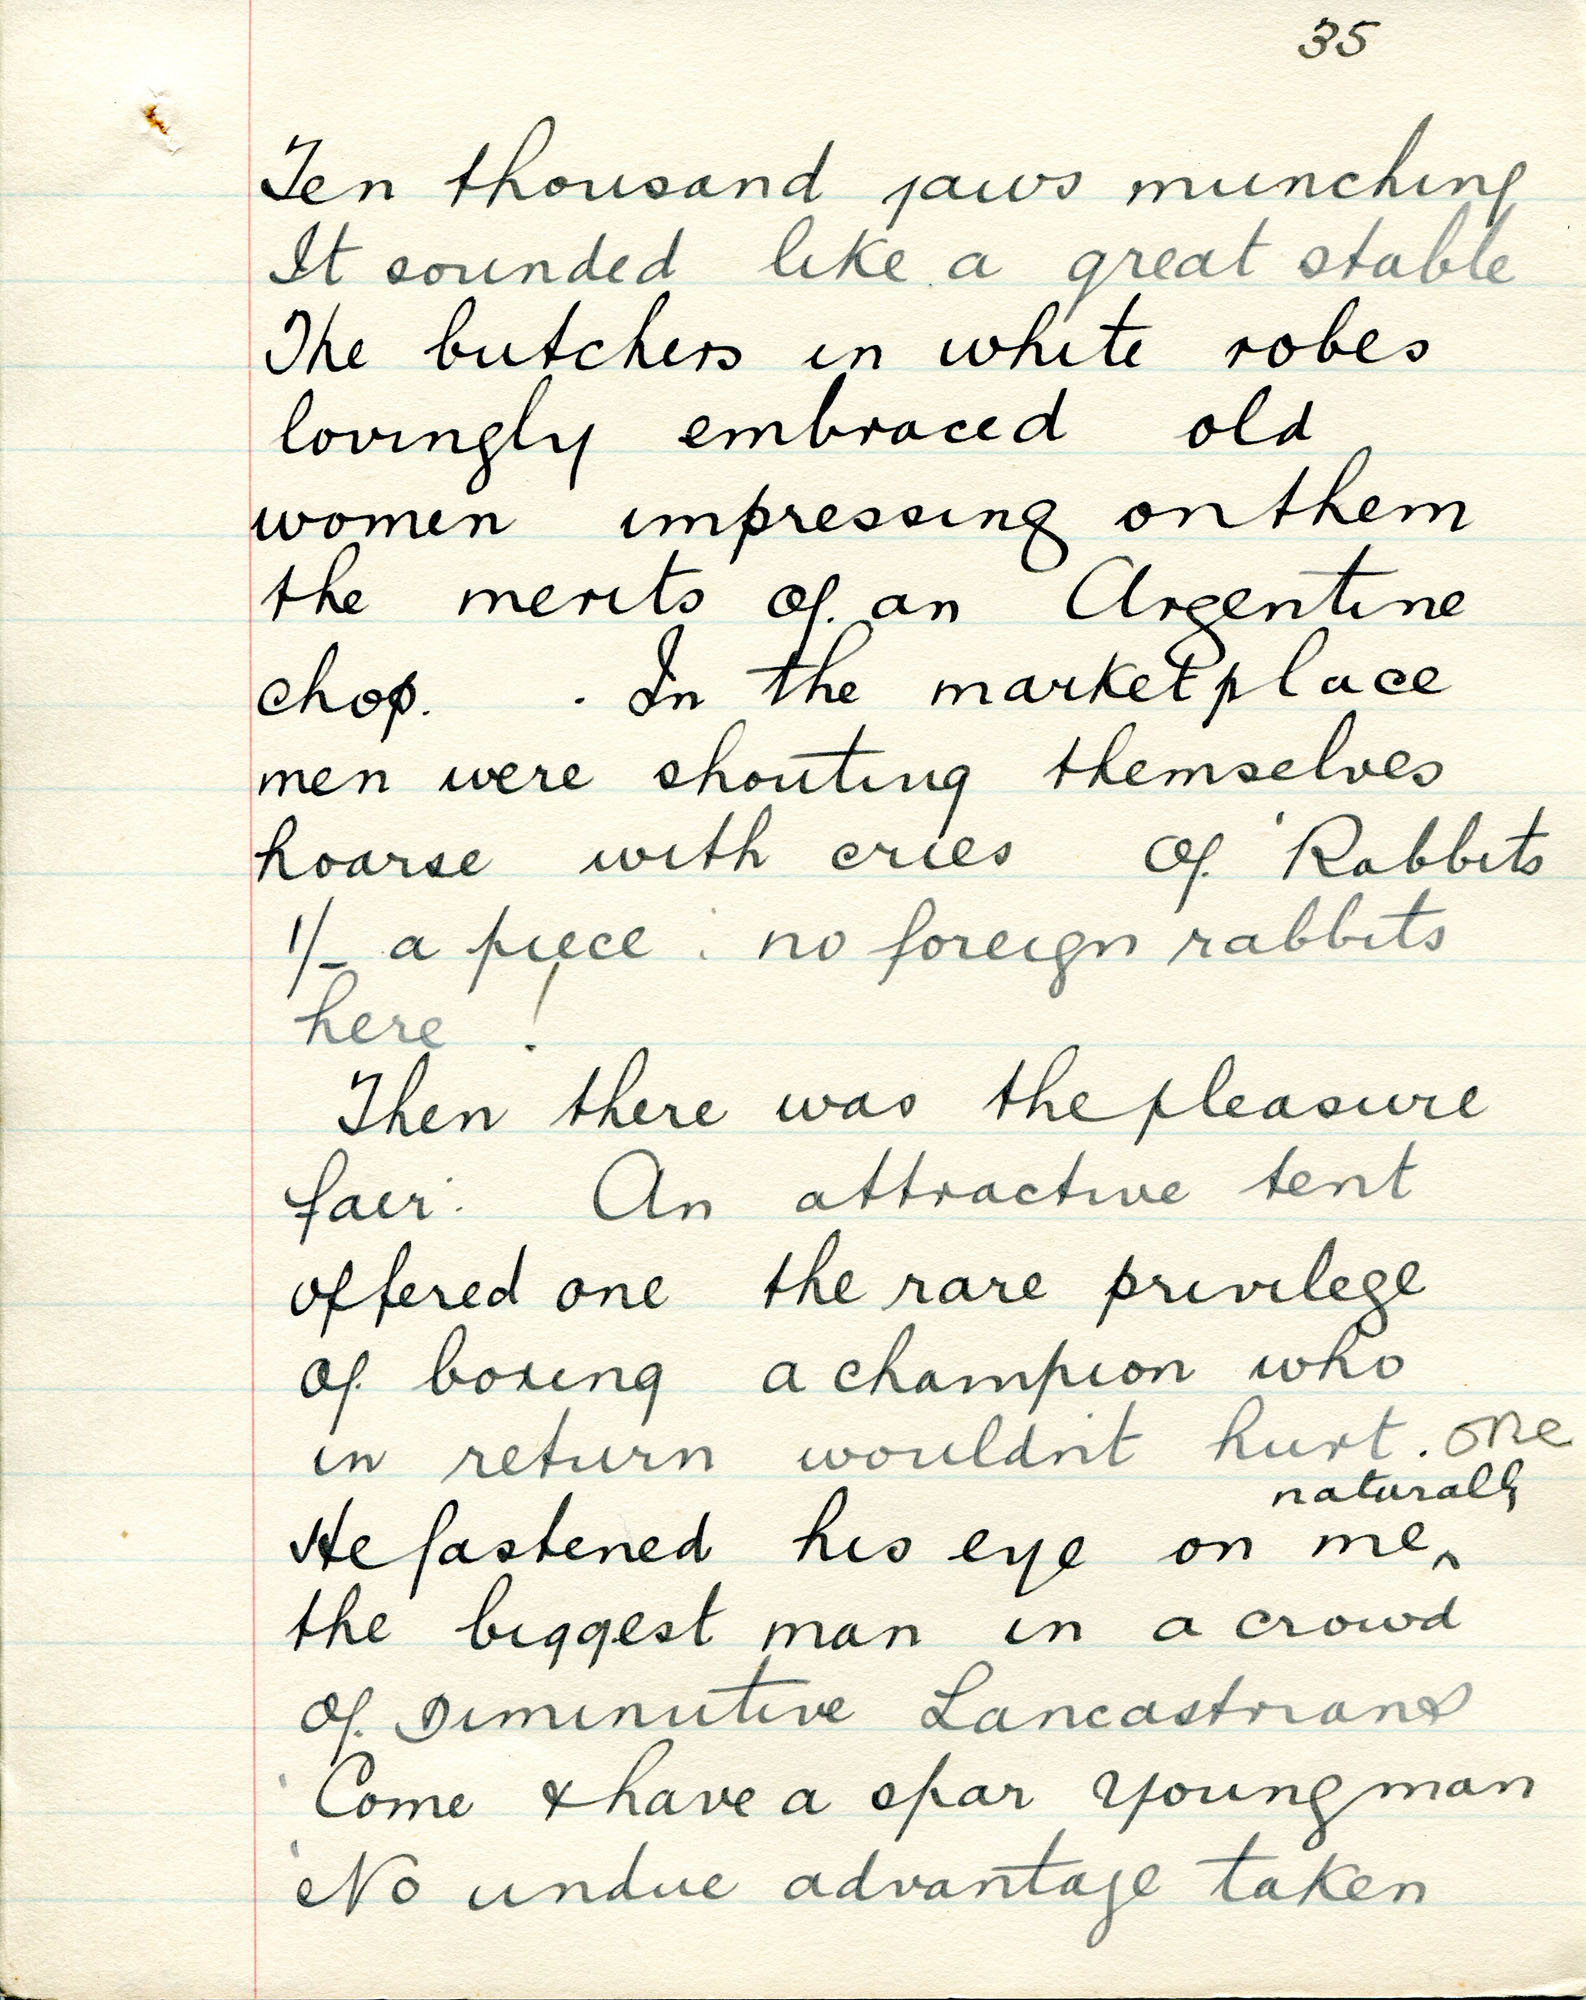 35
Ten thousand jaws munching
It sounded like a great stable
The butchers in white robes
lovingly embraced old
women impressing on them
the merits of an Argentine
chop. . In the marketplace
men were shouting themselves
hoarse with cries of 'Rabbits
1/- a piece : no foreign rabbits
here !
Then there was the pleasure
fair. An attractive tent
offered one the rare privilege
of boxing a champion who
in return wouldn't hurt. one
naturally
He fastened his eye on me ^
the biggest man in a crowd
of Diminutive Lancastrians
'Come & have a spar young man
'No undue advantage taken